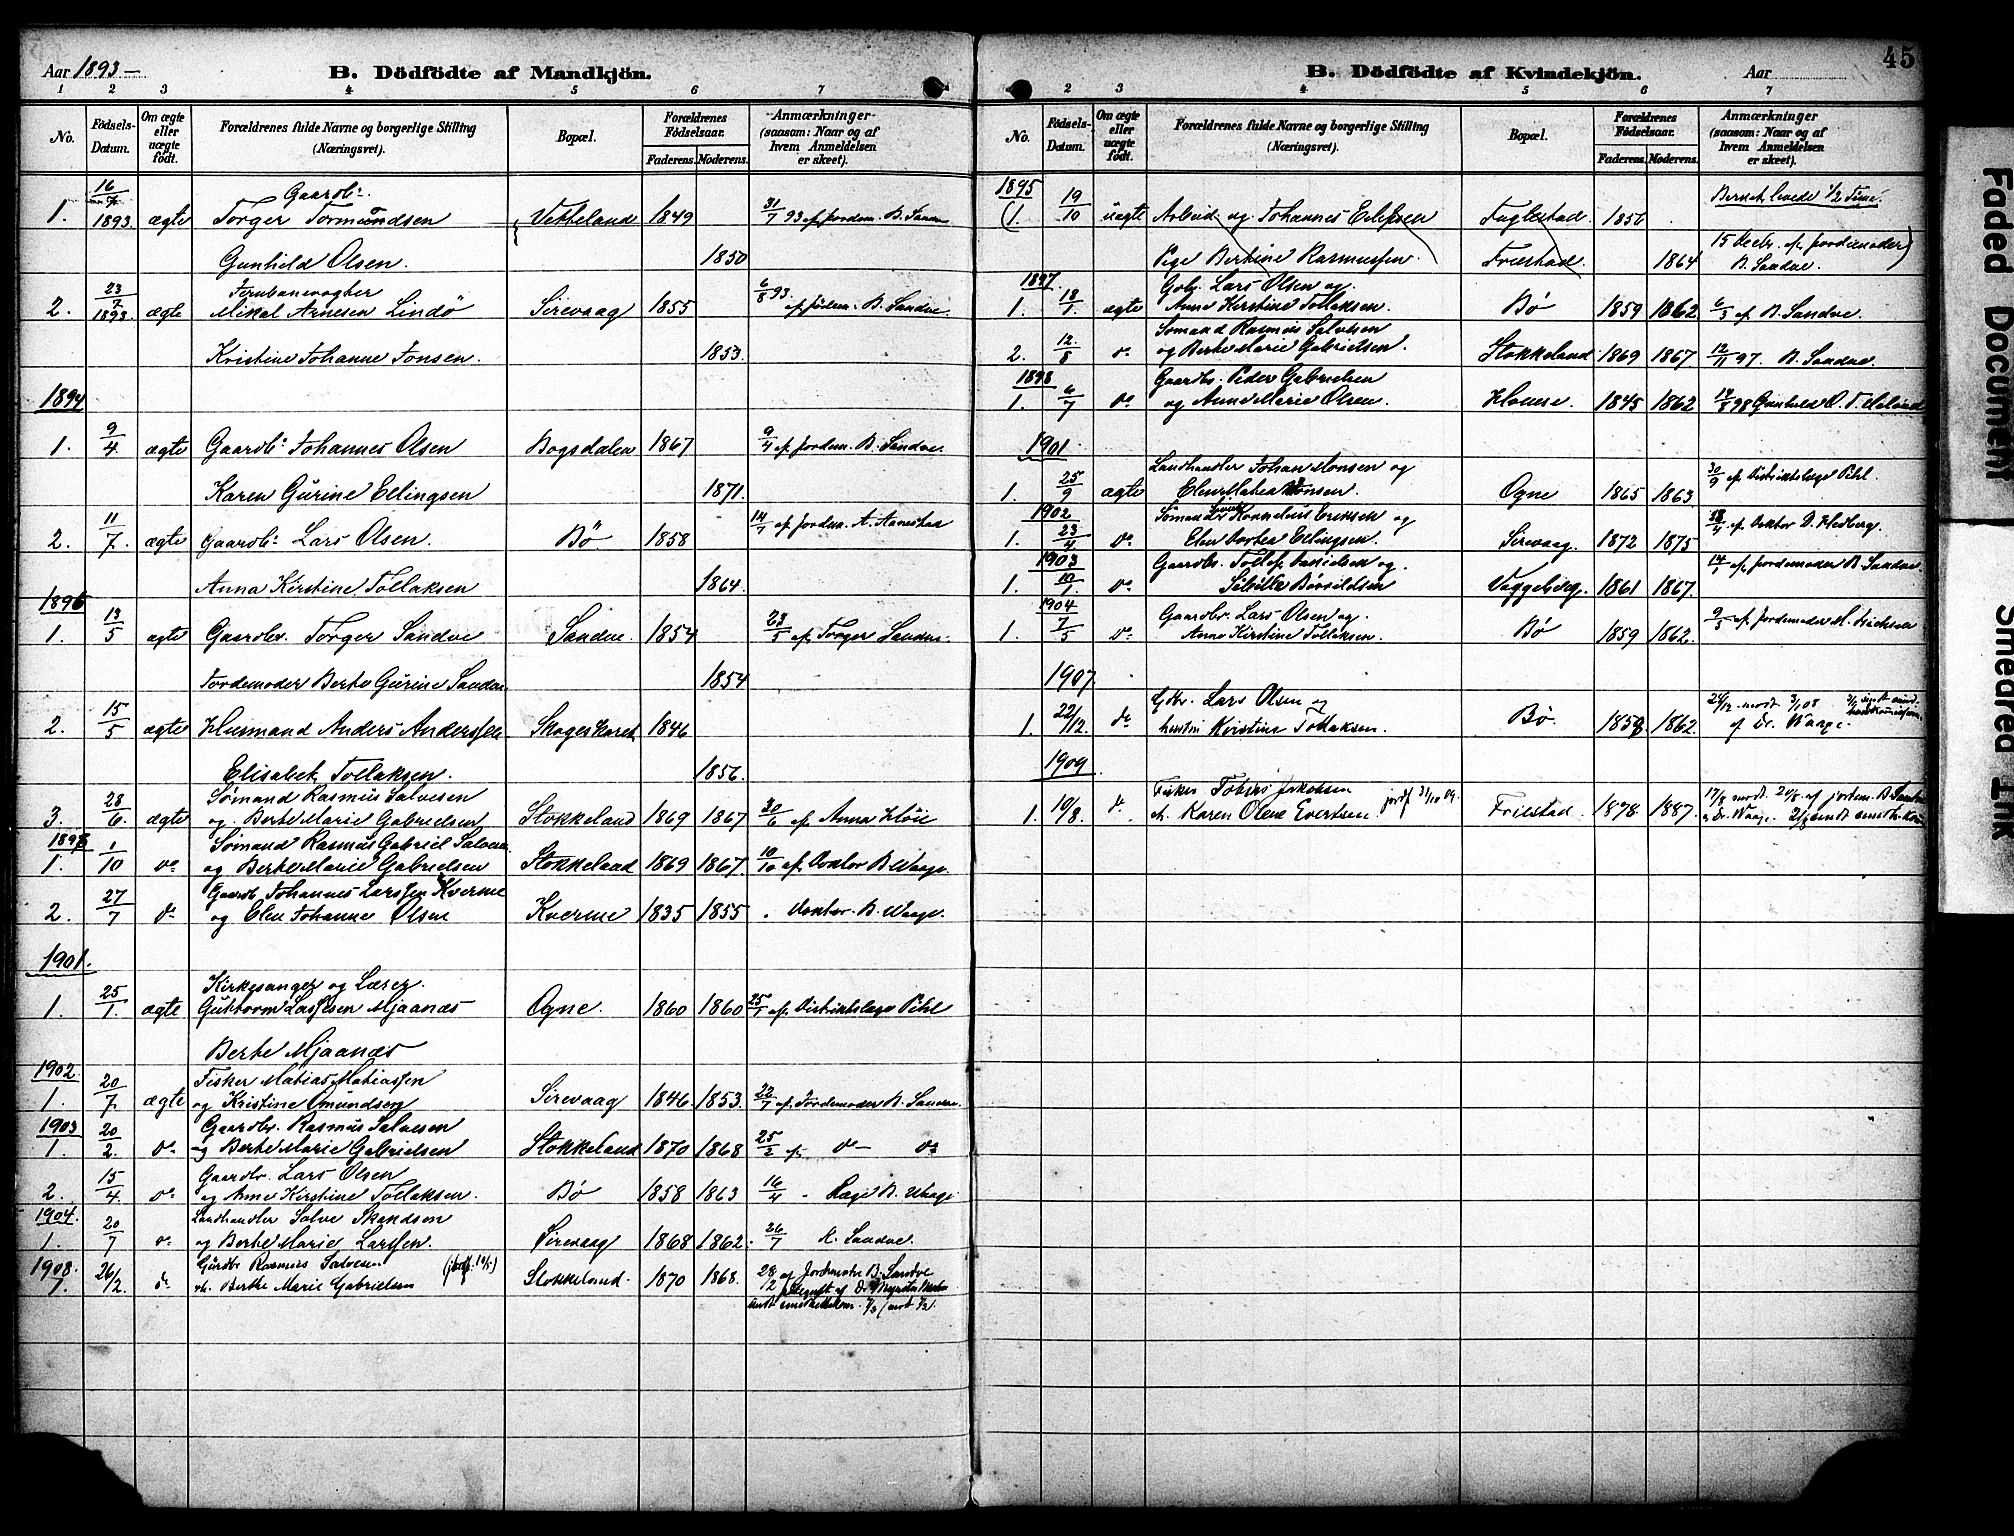 Aar 1893 —
B. Dödfödte af Mandkjön.
1 2 3 4 5 6 7
No. Födsels-Datum. Om ægte eller uægte født. Forældrenes fulde Navne og borgerlige Stilling (Næringsvei). Bopæl. Forældrenes Födselsaar. Faderens. Moderens. Anmærkninger (saasom: Naar og af hvem Anmeldelsen er skeet).
Gaardbr.
1. 16/7 1893. ægte Torger Tormundsen Vetteland 1849 31/7 93 af jordem. B. Sandve
Gunhild Olsen. 1850
Jernbanevogter
2. 23/7 1893. ægte Mikal Arnesen Lindö Sirevaag 1855 6/8 93 af jordem. B. Sandve.
Kristine Johanne Jonsen. 1853.
1894
1. 9/4 ægte Gaardbr. Johannes Olsen Bogsdalen 1867 9/4 af jordem. B. Sandve.
Karen Gurine Ellingsen 1871.
2. 11/7. ægte Gaardbr. Lars Olsen. Bö 1858 14/7 af jordem. A. Aarrestad
Anna Kirstine Tollaksen 1864.
1896
1. 13/5 ægte Gaardbr. Torger Sandve Sandve. 1854 23/5 af Torger Sandve.
Jordemoder Berte Gurine Sandve 1854
2. 15/5 ægte Husmand Anders Anderssen Skogeskaret 1846
Elisabet Tollaksen. 1856.
Sömand Rasmus Salvesen
3. 28/6. ægte og Berte Marie Gabrielsen Stokkeland 1869 1867 30/6 af Anna Höie
1898 Sömand Rasmus Gabriel Salvesen
1. 1/10 do og Berte Marie Gabrielsen Stokkeland 1869 1867. 10/10 af Doktor B. Waage.
Gaardb. Johannes Larssen Kverme
2. 27/7 do og Elen Johanne Olsen Kverme 1835 1855 Doktor B. Waage.
1901.
Kirkesanger og Lærer
1. 25/1. ægte Guttorm Lassesen Mjaanæs Ogne. 1860 1860 25/1 af Distriktslæge Pihl
Berte Mjaanæs
1902 Fisker Matias Matiassen
1. 20/7 ægte og Kristine Omundsen Sirevaag 1846. 1853. 22/7 af Jordemoder B. Sandve.
1903 Gaardbr. Rasmus Salvesen
1. 20/2. do og Berte Marie Gabrielsen Stokkeland 1870 1868 25/2 af do — do
Gaardbr. Lars Olsen
2. 15/4. do og Anne Kirstine Tollaksen. Bö 1858 1863 16/4 - Læge B. Waage
1904. Landhandler Salve Skandsen
1. 20/7 do og Berte Marie Larssen. Sirevaag 1868 1862. 26/7 K. Sandve.
1908. Gårdbr. Rasmus Salvesen
1. 26/2. do Berthe Marie Gabrielsen Stokkeland. 1870 1868. 28/2 af Jordmoder B. Sandve
45
B. Dödfödte af Kvindekjön.
Aar
2 3 4 5 6 7
No. Födsels-Datum. Om ægte eller uægte födt. Forældrenes fulde Navne og borgerlige Stilling (Næringsvei). Bopæl. Forældrenes Födselsaar. Faderens. Moderens. Anmærkninger (saasom: Naar og af hvem Anmeldelsen er skeet).
1895 Barnet levede 1/2 Time.
(1. 19/10 uægte Arbeid. ug. Johannes Eriksen Fuglestad 1856
Pige Bertine Rasmussen Friestad. 1864 15 Decbr. af jordemoder B. Sandve.)
1897 Gbr. Lars Olsen og
1. 18/7. ægte Anne Kirstine Tollaksen. Bö 1859 1862. 6/5 af B. Sandve.
Sömand Rasmus Salvesen
2. 12/8 do og Berte Marie Gabrielsen. Stokkeland 1869 1867. 12/11 97. B. Sandve.
1898 Gaardbr. Peder Gabrielsen
1. 6/7 do og Anne Marie Olsen. 1845 1862 98 Gunhild O. T.
1901
Landhandler Johan Monsen og
1. 25/9 ægte Elen Matea Tönsen. Ogne 1865 1863 30/9 af Distriktslæge Pihl.
1902 Sömand Kornelius Eriksen og
1. 23/4 do Elen Dortea Ellingsen. Sirevaag. 1872 1875 af Doktor D. Hedberg.
1903 Gaardbr. Tollef Danielsen og
1. 10/1. do Sibille Börildsen Vaggeberg. 1861 1867. 14/1 af jordemoder B. Sandve.
1904 Gaardbr. Lars Olsen og
1. 7/5 do Anne Kirstine Tollaksen. Bö 1859 1862. 9/5 af jordemoder
1907.
Gbr. Lars Olsen og
1. 22/12. do hustru Kristine Tollaksen. Bö. 1859. 1862. 24/12 modt 3/1 08 af Dr. Waage.
1909
Fisker Tobias Jakobsen
1. 10/8. do Karen Olene Evertsen jordf 31/10 09. Friestad. 1878. 1887. 17/8 modt. 20/8 af jordem. B. Sandve Dr. Waage.
Faded Document
Smeared Ink